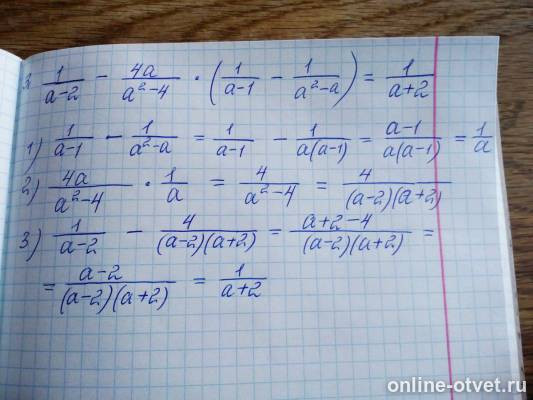 3. 1/(a-2) - 4a/(a²-4) · (1/(a-1) - 1/(a²-a)) = 1/(a+2)
1) 1/(a-1) - 1/(a²-a) = 1/(a-1) - 1/(a(a-1)) = (a-1)/(a(a-1)) = 1/a
2) 4a/(a²-4) · 1/a = 4/(a²-4) = 4/((a-2)(a+2))
3) 1/(a-2) - 4/((a-2)(a+2)) = (a+2-4)/((a-2)(a+2)) =
= (a-2)/((a-2)(a+2)) = 1/(a+2)
online-otvet.ru